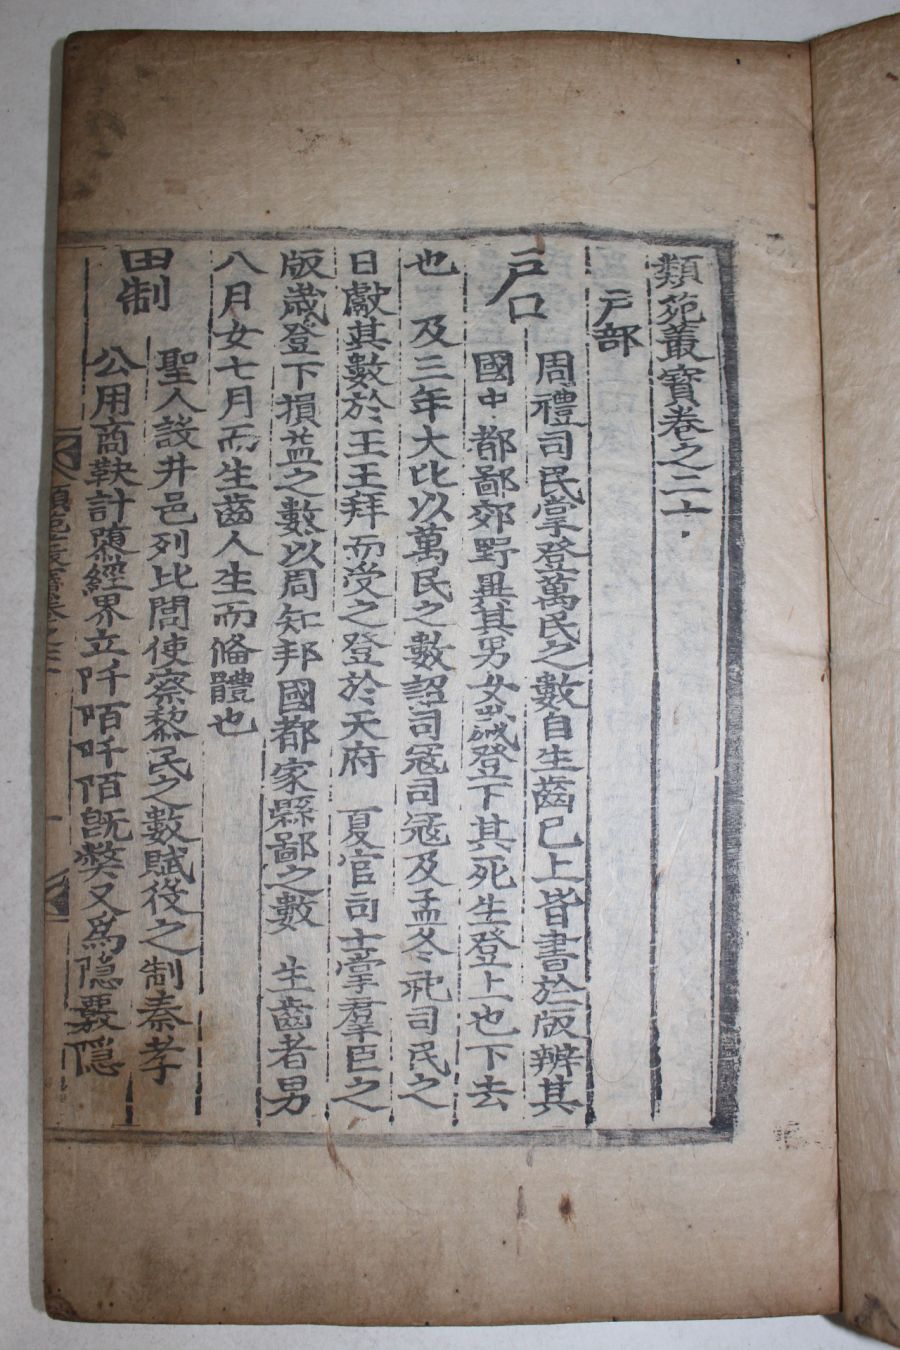 類苑叢寶卷之二十
戶部
戶口
周禮司民掌登萬民之數自生齒已上皆書於版辨其
國中都鄙郊野異其男女歲登下其死生登上也下去
也 及三年大比以萬民之數詔司冦司冦及孟冬祀司民之
日獻其數於王王拜而受之登於天府 夏官司士掌羣臣之
版歲登下損益之數以周知邦國都家縣鄙之數 生齒者男
八月女七月而生齒人生而俻體也
田制
聖人設井邑列比閭使察黎民之數賦役之制秦孝
公用商鞅計隳經界立阡陌阡陌旣獘又爲隱覈隱